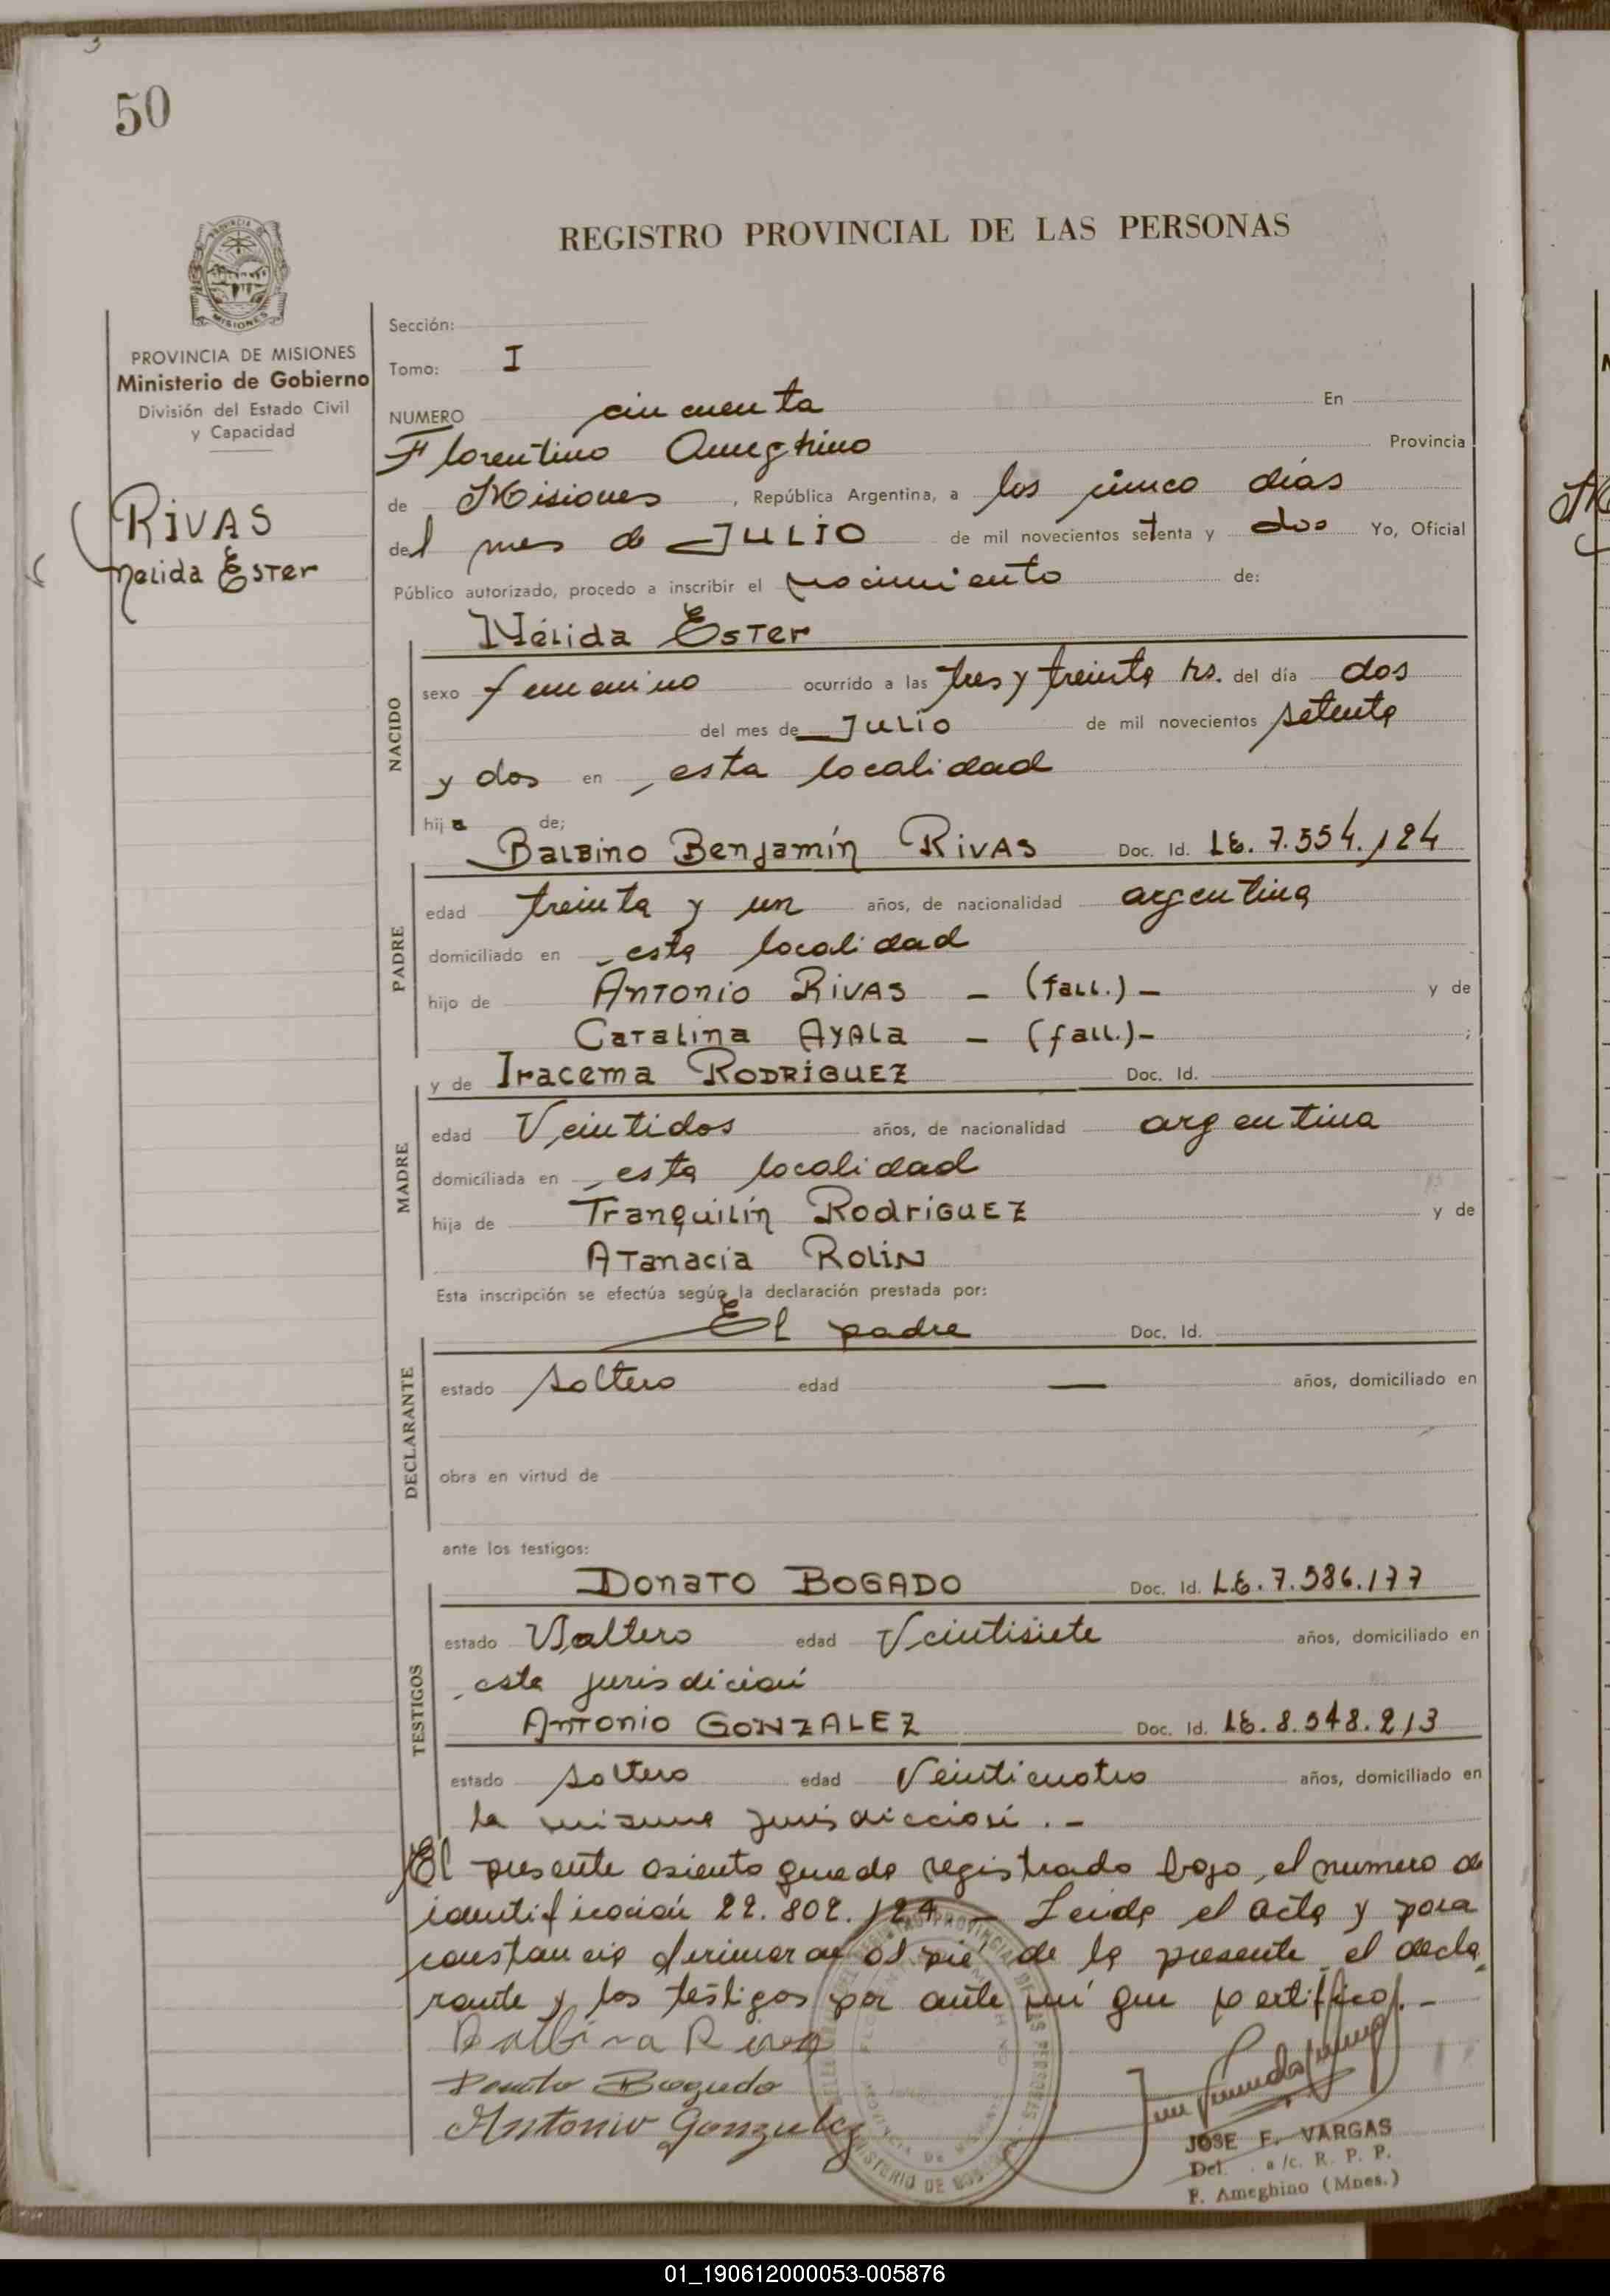 50
REGISTRO PROVINCIAL DE LAS PERSONAS
PROVINCIA DE MISIONES
Ministerio de Gobierno
División del Estado Civil
y Capacidad
RIVAS
Nelida Ester
Sección:
Tomo: I
NUMERO cincuenta En
Florentino Ameghino Provincia
de Misiones, República Argentina, a los cinco días
del mes de JULIO de mil novecientos setenta y dos Yo, Oficial
Público autorizado, procedo a inscribir el nacimiento de:
Nélida Ester
NACIDO
sexo femenino ocurrido a las tres y treinta hs. del día dos
del mes de JULIO de mil novecientos setenta
y dos en esta localidad
hija de;
Balbino Benjamín RIVAS Doc. Id. LE. 7.554.124
PADRE
edad treinta y un años, de nacionalidad argentina
domiciliado en esta localidad
hijo de Antonio RIVAS - (fall.) - y de
Catalina AYALA - (fall.) - ;
y de Iracema RODRÍGUEZ Doc. Id.
MADRE
edad Veintidos años, de nacionalidad argentina
domiciliada en esta localidad
hija de Tranquilín RodriGUEZ y de
Atanacia ROLIN
Esta inscripción se efectúa según la declaración prestada por:
El padre Doc. Id.
DECLARANTE
estado soltero edad — años, domiciliado en
obra en virtud de
ante los testigos:
DONATO BOGADO Doc. Id. L.E. 7.586.177
TESTIGOS
estado soltero edad Veintisiete años, domiciliado en
esta jurisdición
Antonio GONZALEZ Doc. Id. LE. 8.548.213
estado soltero edad Veinticuatro años, domiciliado en
la misma jurisdicción. -
El presente asiento queda registrado bajo el numero de
identificación 22.802.124 - Leida el acta y para
constancia firman al pié de la presente el decla
rante y los testigos por ante mí que certifico. -
Balbino Rivas
Donato Bogado
Antonio Gonzalez
JOSE F. VARGAS
Del. a/c. R. P. P.
F. Ameghino (Mnes.)
01_190612000053-005876